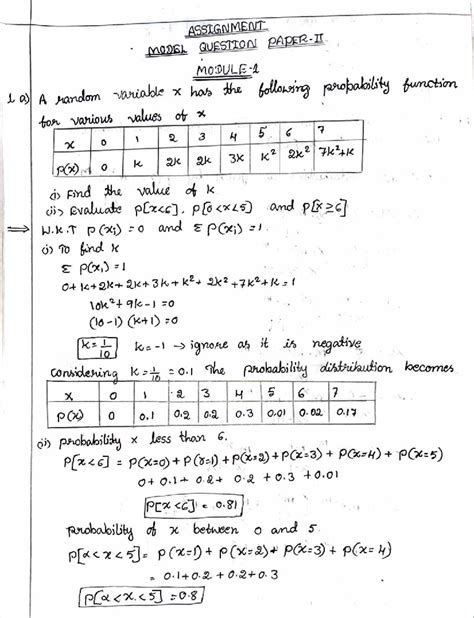 ASSIGNMENT
MODEL QUESTION PAPER-II
MODULE-1
1 a) A random variable x has the following probability function
for various values of x
x 0 1 2 3 4 5 6 7
P(x) 0 k 2k 2k 3k k² 2k² 7k²+k
i) Find the value of k
ii) Evaluate P[x<6], P[0<x<5] and P[x≥6]
⇒ W.K.T P(xi) = 0 and Σ P(xi) = 1.
i) To find k
Σ P(xi) = 1
0+k+2k+2k+3k+k²+2k²+7k²+k = 1
10k²+9k-1=0
(10-1) (k+1) = 0
k = 1/10 k = -1 → ignore as it is negative
Considering k = 1/10 = 0.1 The probability distribution becomes
x 0 1 2 3 4 5 6 7
P(x) 0 0.1 0.2 0.2 0.3 0.01 0.02 0.17
ii) probability x less than 6.
P[x<6] = P(x=0) + P(x=1) + P(x=2) + P(x=3) + P(x=4) + P(x=5)
0 + 0.1 + 0.2 + 0.2 + 0.3 + 0.01
P[x<6] = 0.81
probability of x between 0 and 5.
P[α<x<5] = P(x=1) + P(x=2) + P(x=3) + P(x=4)
= 0.1+0.2+0.2+0.3
P[α<x<5] = 0.8